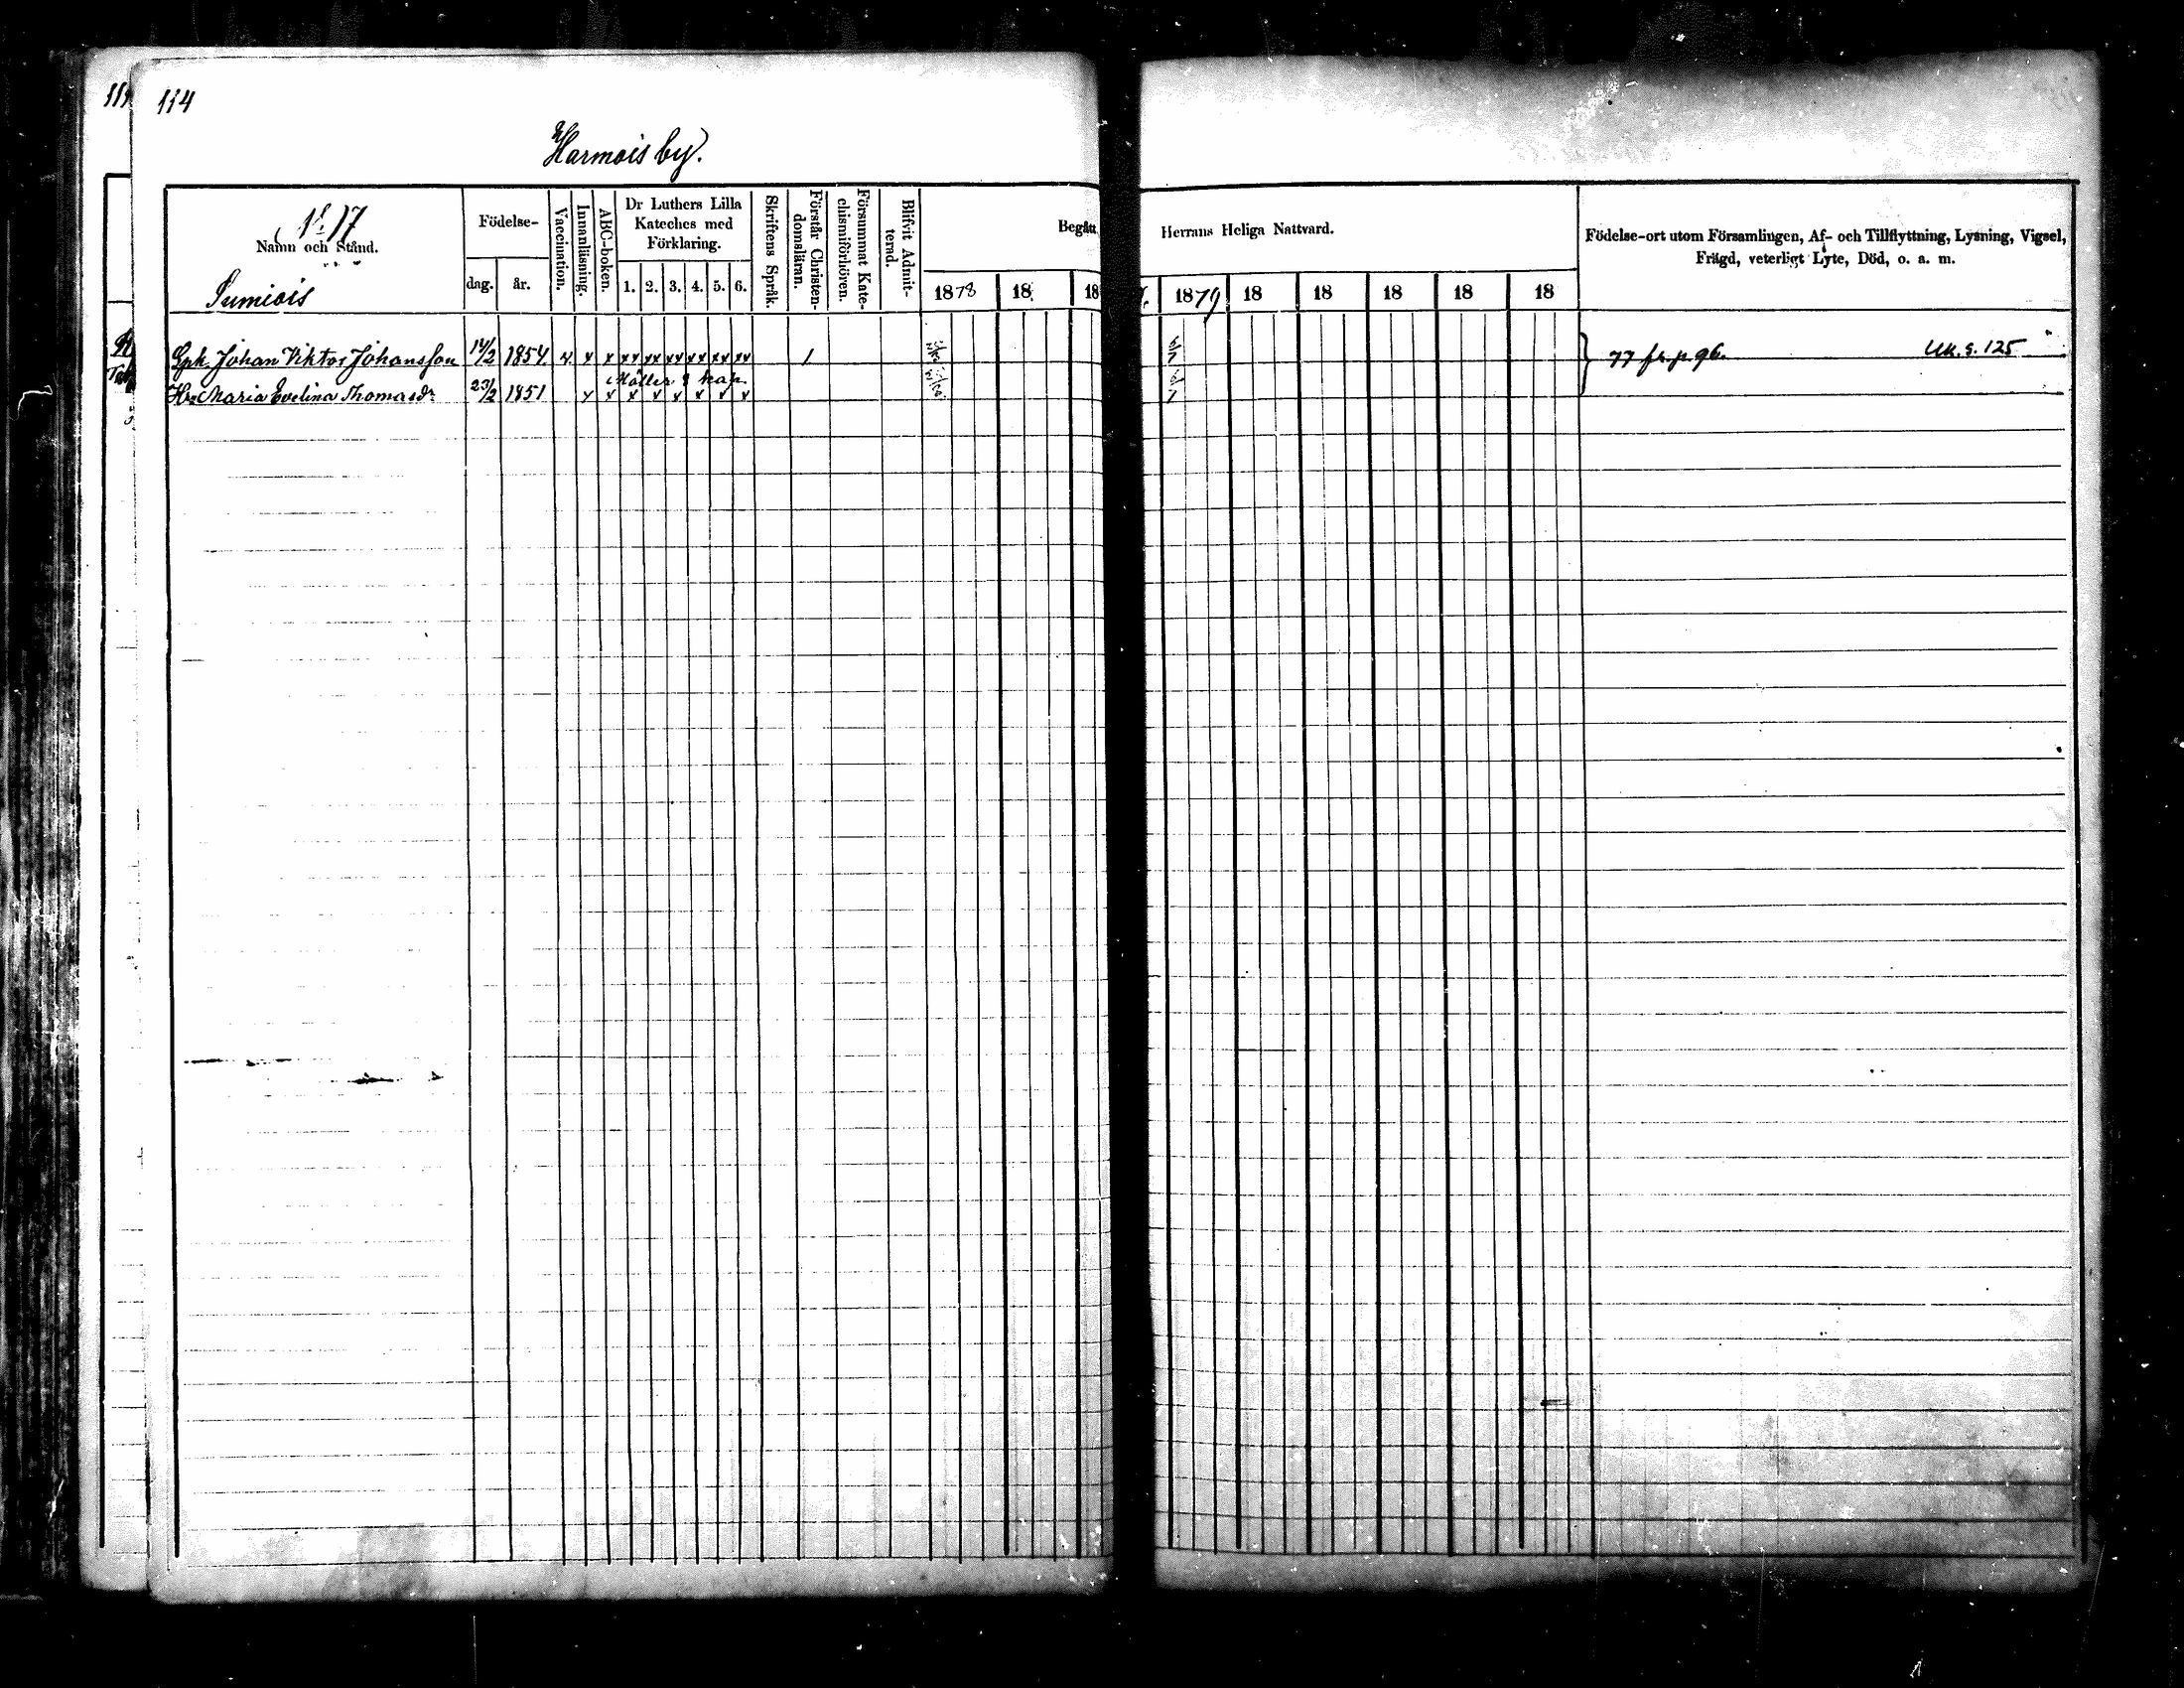 114
Harmois by.
N:o 17
Namn och Stånd.
Sumiois
Födelse-
dag.
år.
Vaccination.
Innanläsning.
ABC-boken.
Dr Luthers Lilla
Kateches med
Förklaring.
1. 2. 3. 4. 5. 6.
Skriftens Språk.
Förstår Christen-
domsläran.
Försummat Kate-
chismiförhören.
Blifvit Admit-
terad.
Begått
Herrans Heliga Nattvard.
1878 18 18
1879 18 18 18 18 18
Födelse-ort utom Församlingen, Af- och Tillflyttning, Lysning, Vigsel,
Frägd, veterligt Lyte, Död, o. a. m.
Spk. Johan Viktor Johansson 14/2 1854 v. x x xx xx xx xx xx xx 1 6/7 77 fr. p. 96. Uk. s. 125
Möller 9 kap
Hu Maria Evelina Thomasdr 23/2 1851 x x x x x x x x 6/7